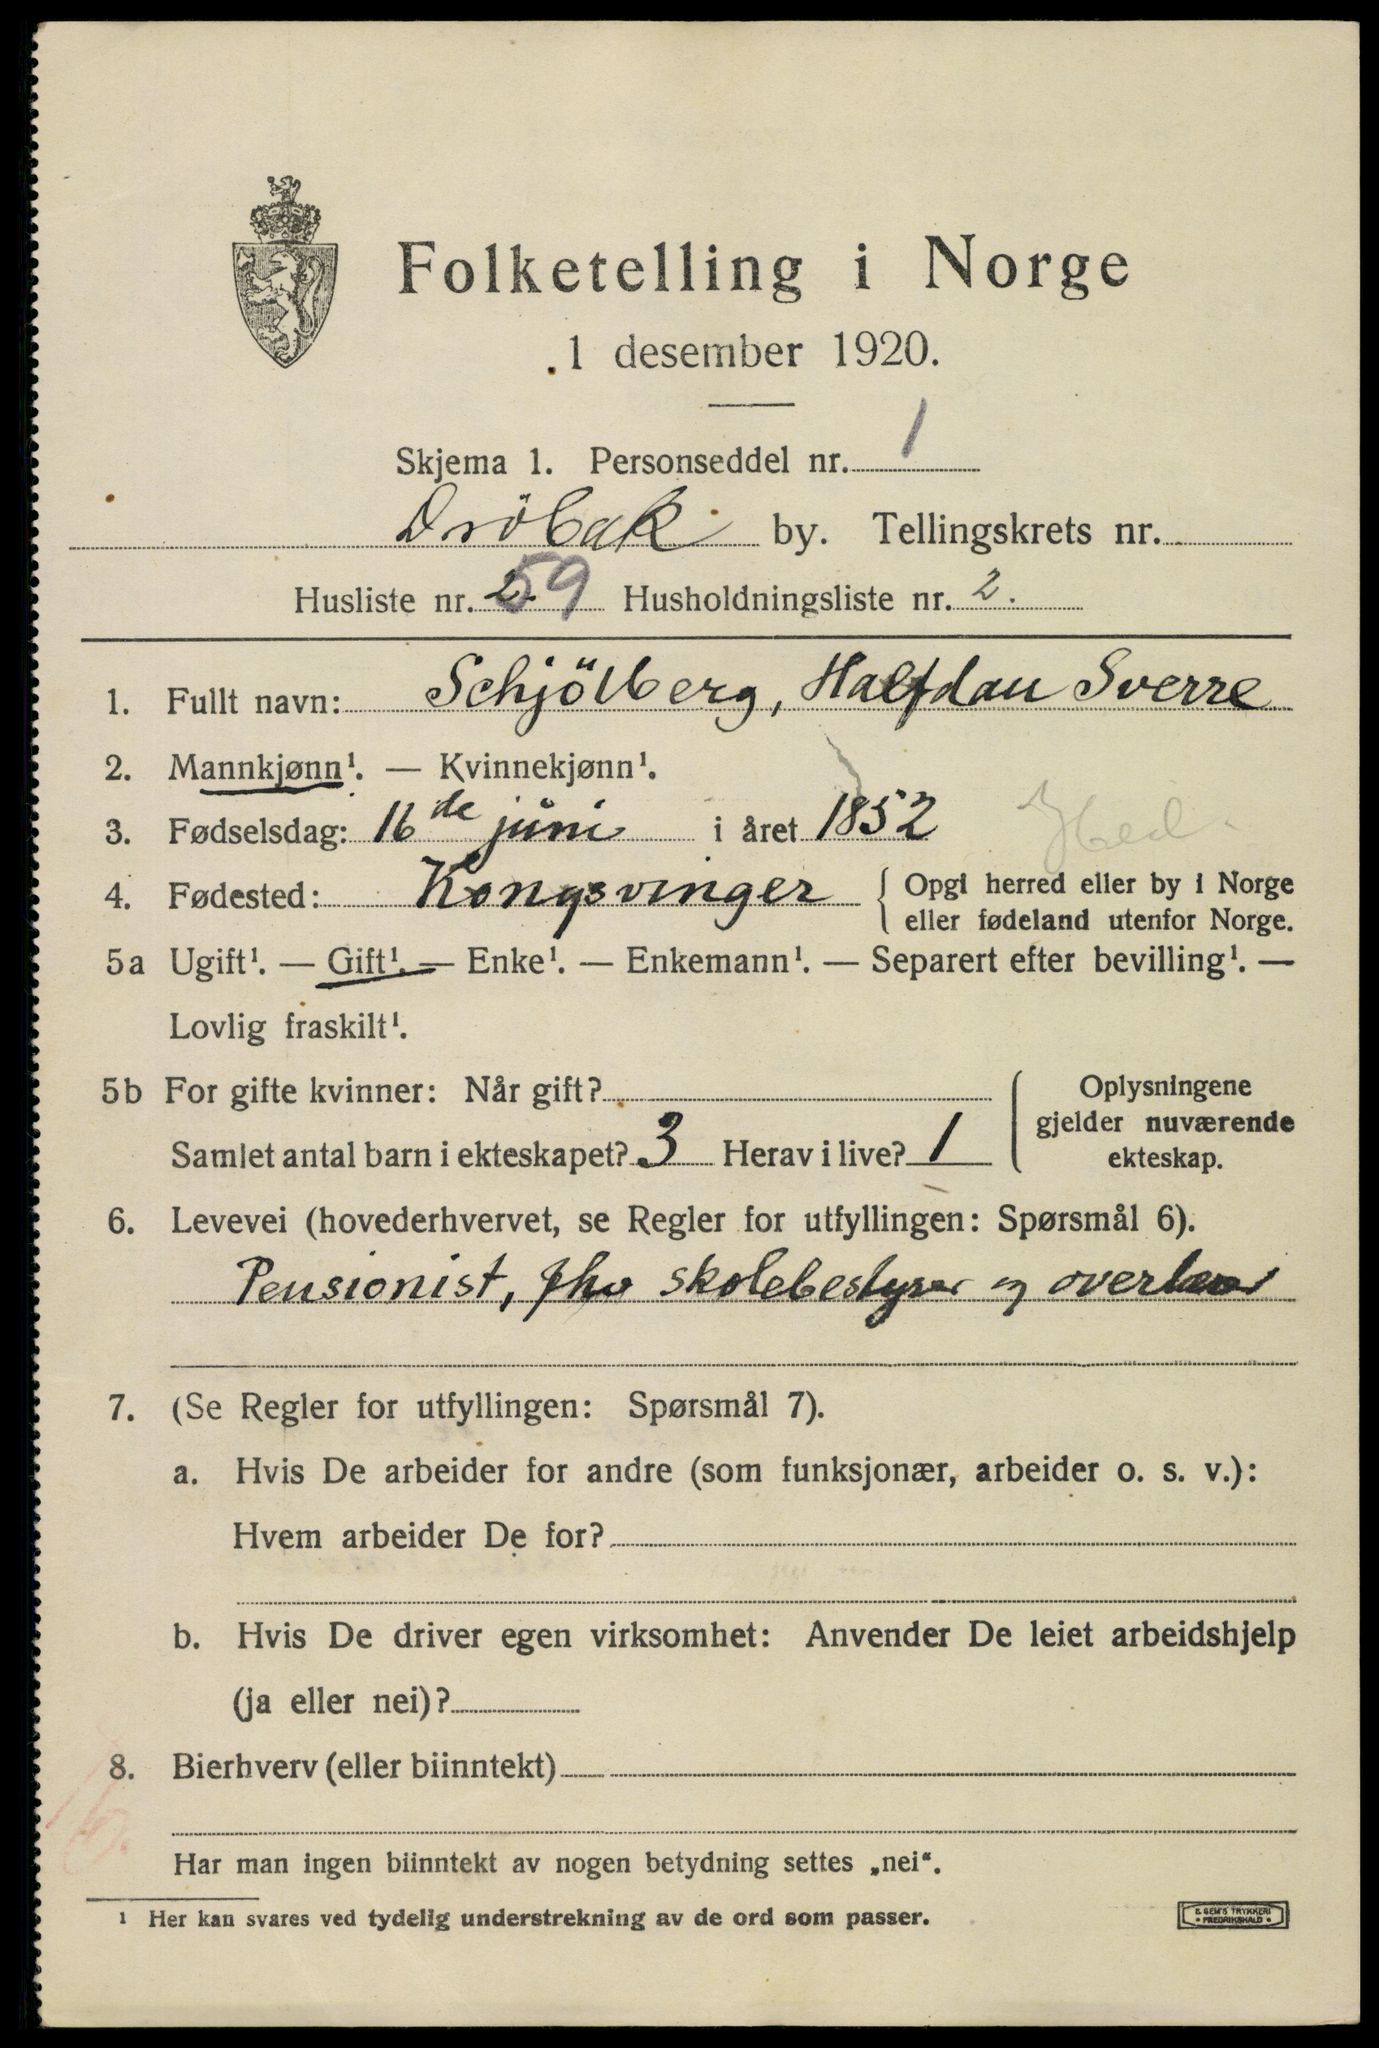 Folketelling i Norge
1 desember 1920.
Skjema 1. Personseddel nr. 1
Dröbak by. Tellingskrets nr.
Husliste nr. 2. 59 Husholdningsliste nr. 2.
1. Fullt navn: Schjölberg, Halfdan Sverre
2. Mannkjønn¹. — Kvinnekjønn¹.
3. Fødselsdag: 16de juni i året 1852 Hed.
4. Fødested: Kongsvinger { Opgi herred eller by i Norge
eller fødeland utenfor Norge.
5a Ugift¹. — Gift¹. — Enke¹. — Enkemann¹. — Separert efter bevilling¹. —
Lovlig fraskilt¹.
5b For gifte kvinner: Når gift? Oplysningene
gjelder nuværende
Samlet antal barn i ekteskapet? 3 Herav i live? 1 ekteskap.
6. Levevei (hovederhvervet, se Regler for utfyllingen: Spørsmål 6).
Pensionist, fhv skolebestyrer og overlærer
7. (Se Regler for utfyllingen: Spørsmål 7).
a. Hvis De arbeider for andre (som funksjonær, arbeider o. s. v.):
Hvem arbeider De for?
b. Hvis De driver egen virksomhet: Anvender De leiet arbeidshjelp
(ja eller nei)?
8. Bierhverv (eller biinntekt) —
Har man ingen biinntekt av nogen betydning settes „nei“.
¹ Her kan svares ved tydelig understrekning av de ord som passer.
E. SEM'S TRYKKERI
• FREDRIKSHALD •